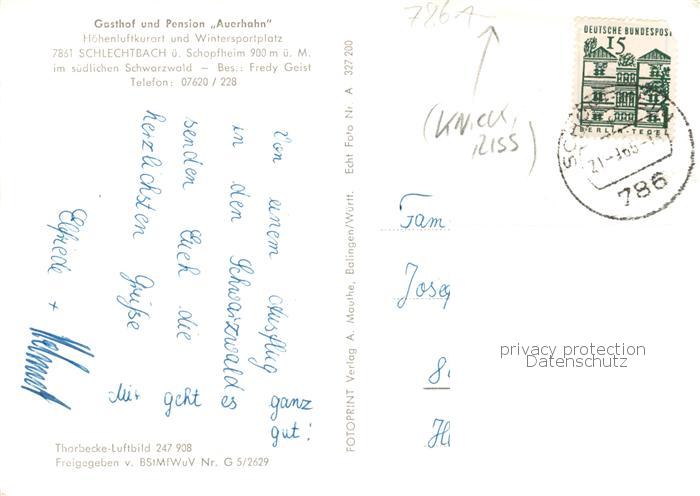 Gasthof und Pension „Auerhahn"
Höhenluftkurort und Wintersportplatz
7861 SCHLECHTBACH ü. Schopfheim 900 m ü. M.
im südlichen Schwarzwald – Bes.: Fredy Geist
Telefon: 07620 / 228
Von einem Ausflug
in den Schwarzwald
senden Euch die
herzlichsten Grüße
Elfriede + Helmut
Mir geht es ganz
gut!
Thorbecke-Luftbild 247 908
Freigegeben v. BStMfWuV Nr. G 5/2629
FOTOPRINT Verlag A. Mauthe, Balingen/Württ. Echt Foto Nr. A 327 200
786
(KNICK,
RISS)
DEUTSCHE BUNDESPOST
15
BERLIN-TEGEL
786
Fam
Josep
privacy protection
Datenschutz